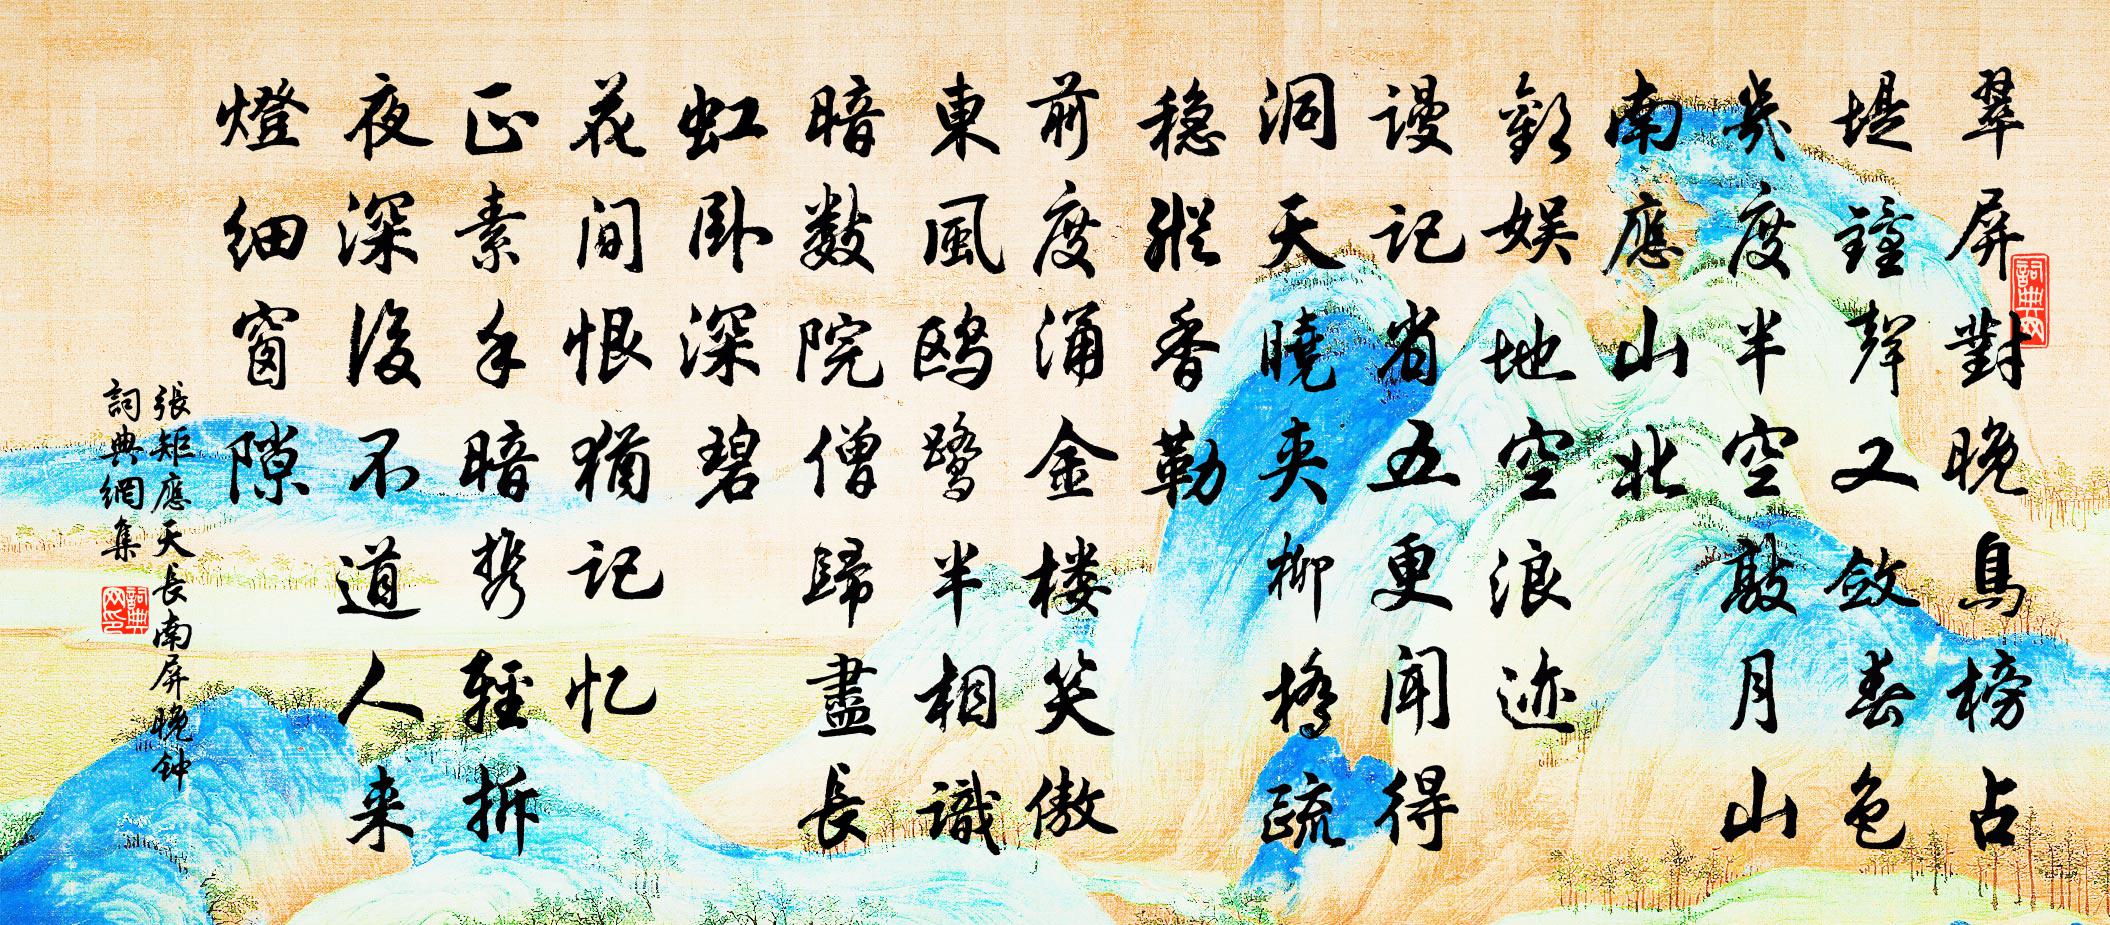 翠屏對晚鳥榜占
堤鐘聲又斂春色
幾度半空敲月山
南應山北
歡娱地空浪迹
谩记省五更闻得
洞天曉夹柳橋疏
稳縱香勒
前度涌金楼笑傲
東風鸥鹭半相識
暗数院僧歸盡長
虹卧深碧
花间恨猶记忆
正素手暗携輕拆
夜深後不道人来
燈细窗隙
張矩應天長南屏晚钟
詞典網集
詞典网
詞典网印